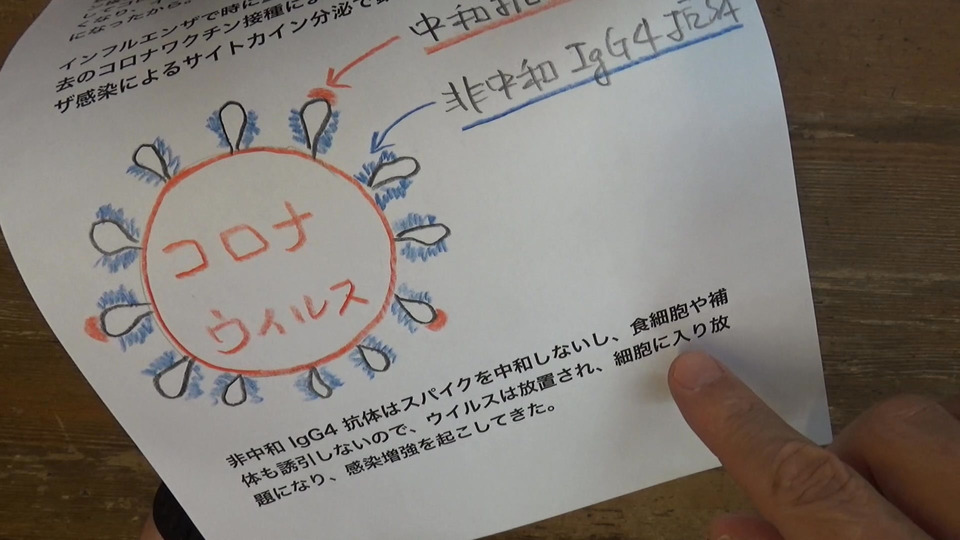 になったから。
インフルエンザで時に
去のコロナワクチン接種によ
ザ感染によるサイトカイン分泌で
中和抗
非中和 IgG4 抗体
コロナ
ウイルス
非中和 IgG4 抗体はスパイクを中和しないし、食細胞や補
体も誘引しないので、ウイルスは放置され、細胞に入り放
題になり、感染増強を起こしてきた。